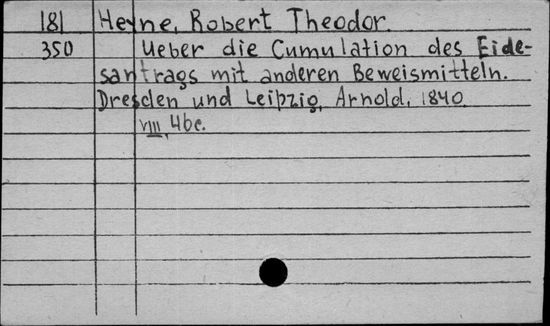 181 Heyne, Robert Theodor.
350 Ueber die Cumulation des Eide-
santrags mit anderen Beweismitteln.
Dresden und Leipzig, Arnold, 1840.
VIII,